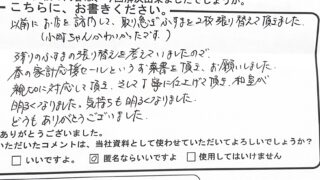 こちらに、お書きください。
以前にお店を訪問して、取り急ぎふすまを2枚張り替えて頂きました。
(小町ちゃんかわいかったです)
残りのふすまの張り替えを考えていましたので、
春の家計応援セールというお葉書を頂き、お願いしました。
親切に対応して頂き、そして丁寧に仕上げて頂き和室が
明るくなりました。気持ちも明るくなりました。
どうもありがとうございました。
ありがとうございました。
いただいたコメントは、当社資料として使わせていただいてよろしいでしょうか?
□いいですよ。 ☑匿名ならいいですよ □使用してはいけません